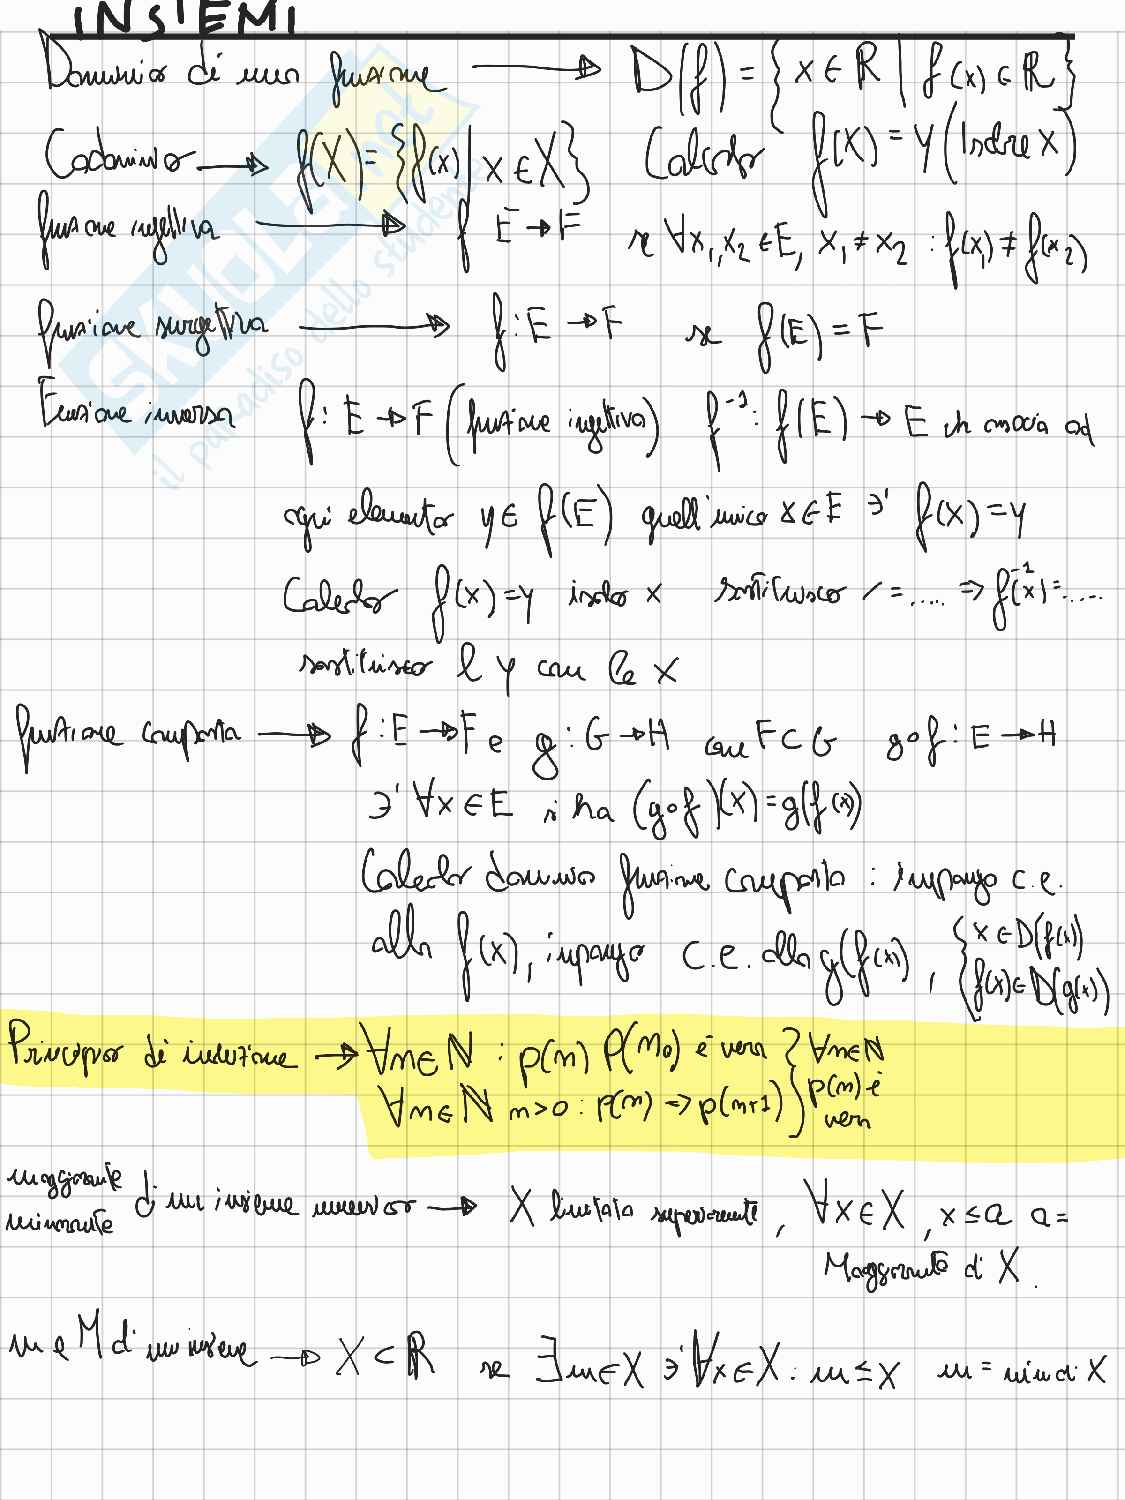 INSIEMI
Dominio di una funzione → D(f) = { x ∈ ℝ | f(x) ∈ ℝ }
Codominio → f(X) = { f(x) | x ∈ X } Calcolo f(X) = y (Isolare X)
funzione iniettiva → f E → F se ∀x₁,x₂ ∈ E, x₁ ≠ x₂ : f(x₁) ≠ f(x₂)
funzione surgettiva → f : E → F se f(E) = F
Funzione inversa f : E → F (funzione iniettiva) f⁻¹ : f(E) → E ch associa ad
ogni elemento y ∈ f(E) quell'unico x ∈ E ∋' f(x) = y
Calcolo f(x) = y isolo x sostituisco / = .... ⇒ f⁻¹(x) = ....
sostituisco l y con le x
funzione composta → f : E → F e g : G → H con F ⊂ G g∘f : E → H
∋' ∀x ∈ E si ha (g∘f)(x) = g(f(x))
Calcolo dominio funzione composta : impongo c.e.
alla f(x), impongo c.e. alla g(f(x)) , { x ∈ D(f(x))
f(x) ∈ D(g(x))
Principio di induzione → ∀n ∈ ℕ : p(n) P(n₀) è vera } ∀n ∈ ℕ
∀n ∈ ℕ n > 0 : p(n) ⇒ p(n+1) p(n) è
vera
maggiorante
minorante di un insieme numerico → X limitato superiormente, ∀x ∈ X, x ≤ a a =
Maggiorante di X.
m e M di un insieme → X ⊂ ℝ se ∃ m ∈ X ∋' ∀x ∈ X : m ≤ x m = min di X
SKUOLA.net
il paradiso dello studente